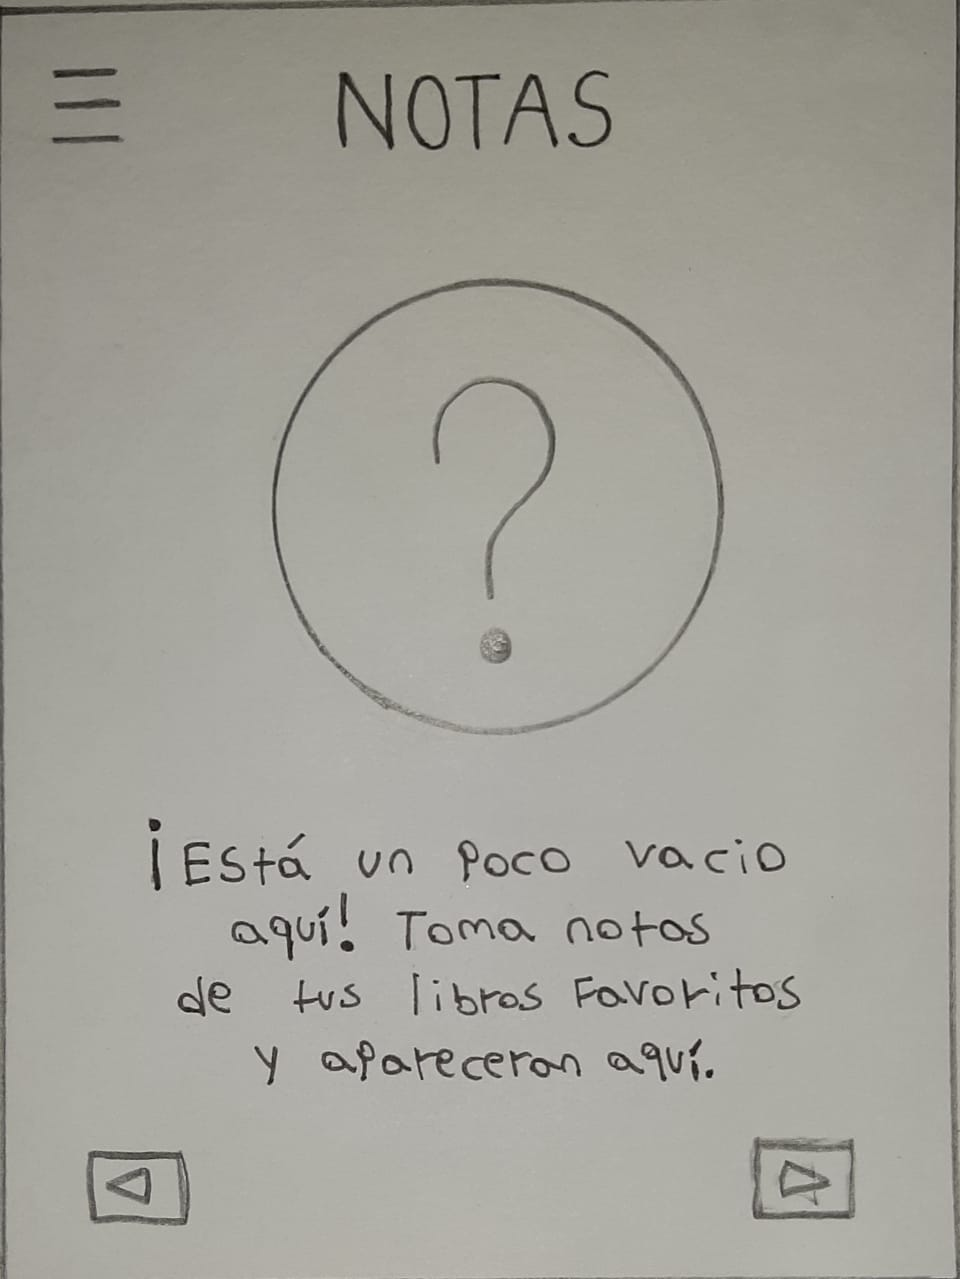 NOTAS
¡Está un poco vacio
aquí! Toma notas
de tus libros Favoritos
y apareceran aquí.